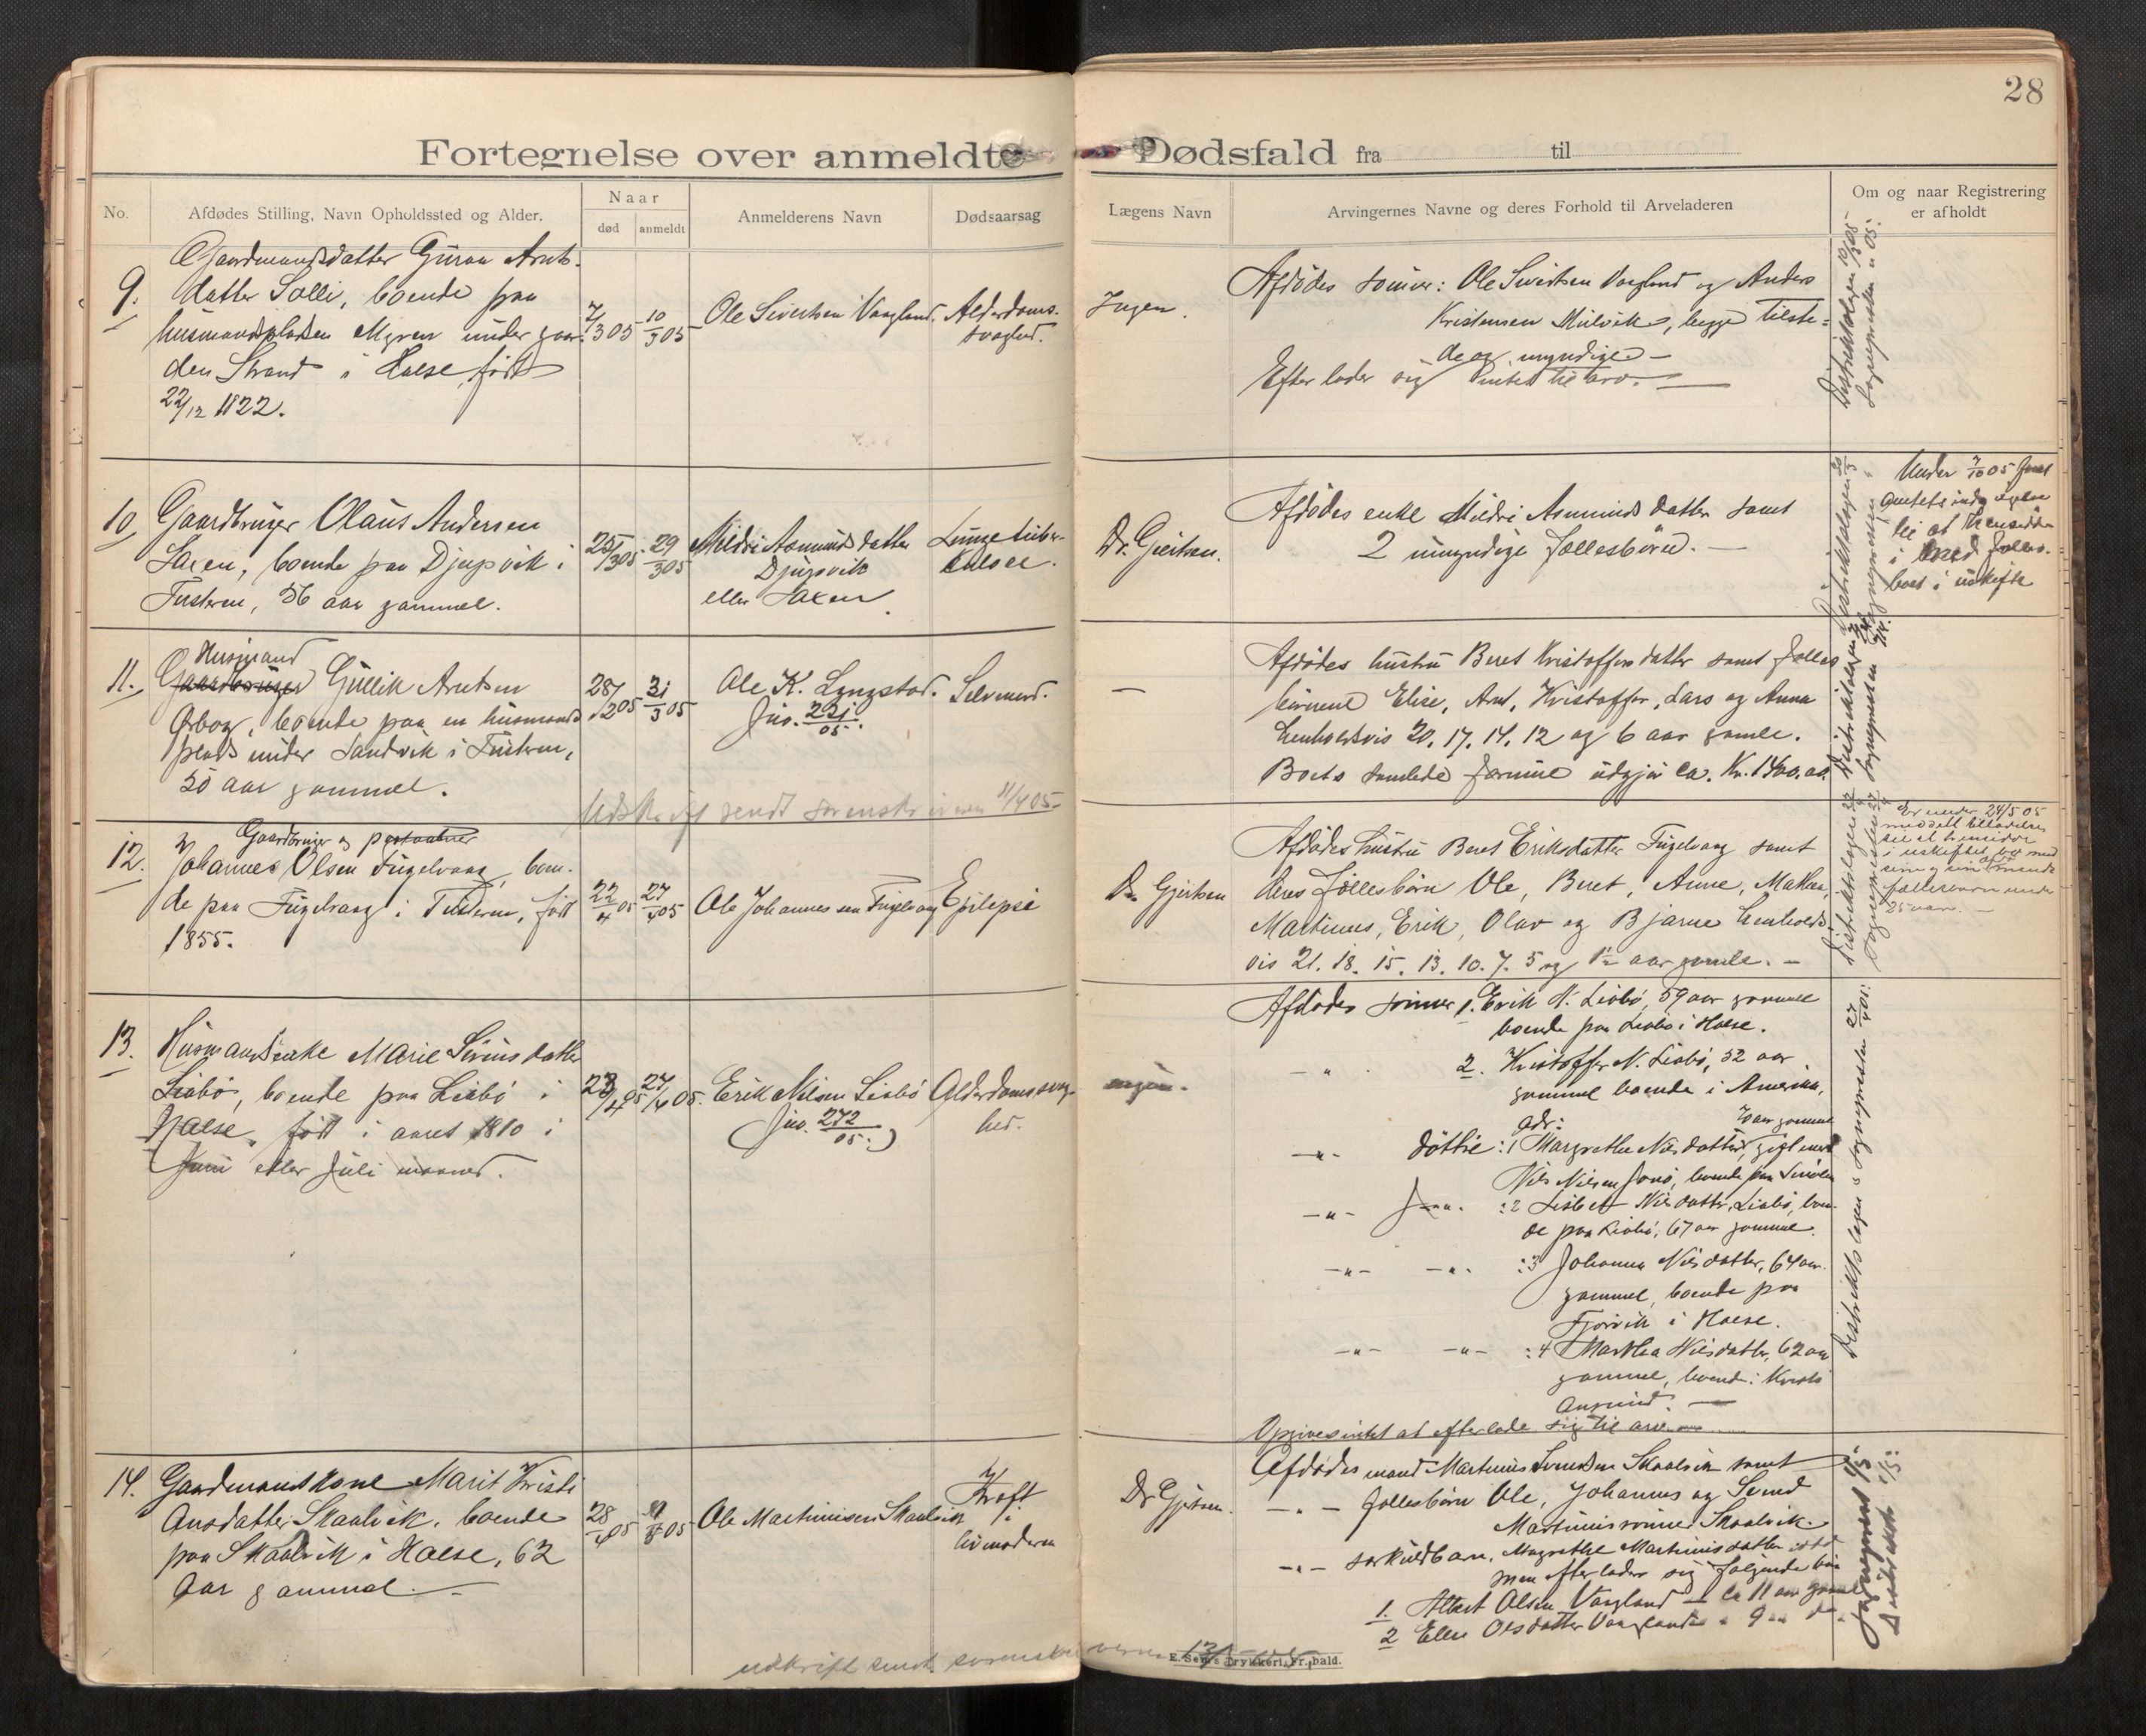 28
Fortegnelse over anmeldte Dødsfald fra til
No.
Afdødes Stilling, Navn Opholdssted og Alder.
Naar
død
anmeldt
Anmelderens Navn
Dødsaarsag
Lægens Navn
Arvingernes Navne og deres Forhold til Arveladeren
Om og naar Registrering
er afholdt
9.
Gaardmandsdatter Guru Arnts-
datter Solli, boende paa
husmandspladsen Myren under gaar-
den Strand i Halse, født
22/12 1822.
7/3 05
10/3 05
Ole Sivertsen Vaagland.
Alderdoms-
svaghed.
Ingen.
Afdødes sönner: Ole Sivertsen Vaagland og Anders
Kristensen Mulvik, begge tilste-
de og myndige —
Efterlader sig intet til arv. —
Distriktslægen 10/3 05
Sognepresten " 05.
10.
Gaardbruger Olaus Andersen
Saxen, boende paa Djupvik i
Tusteren, 56 aar gammel.
25/3 05
29/3 05
Mildri Asmundsdatter
Djupsvik
eller Saxen.
Lungetuber-
kulose.
Dr. Gjertsen.
Afdødes enke Mildri Asmundsdatter samt
2 umyndige fællesbörn. —
Under 7/10 05
i med fælles-
boet i uskifte
11.
Husmand
Gaardbruger Gullik Arntsen
Ørbog, boende paa en husmands-
plads under Sandvik i Tusteren,
50 aar gammel.
28/2 05
31/3 05
Ole K. Lyngstad.
Jno. 221/05.
Selvmord.
—
Afdødes hustru Beret Kristoffersdatter samt fælles
börnene Elise, Arnt, Kristoffer, Lars og Anna
henholdsvis 20, 17, 14, 12 og 6 aar gamle.
Boets samlede formue udgjör ca. Kr. 1400.00.
Udskrift sendt sorenskriveren 11/4 05
12.
Gaardbruger og
Johannes Olsen Fugelvaag, boen-
de paa Fugelvaag i Tusteren, født
1855.
22/4 05
27/4 05
Ole Johannessen Fugelvaag
Epilepsi
Dr. Gjertsen
Afdødes hustru Beret Eriksdatter Fugelvaag samt
deres fællesbörn Ole, Beret, Anne, Mathea,
Martinus, Erik, Olav og Bjarne henholds-
vis 21. 18. 15. 13. 10. 7. 5 og 1½ aar gamle. —
Er under 24/5 05
meddelt tilladelse
til at hensidde
i uskiftet bo med
fællesbörn under
25 aar. —
13.
Husmandsenke Marie Siversdatter
Liabö, boende paa Liabö i
Halse, født i aaret 1810 i
Juni eller Juli maaned.
23/4 05
27/4 05.
Erik Nilsen Liabö
(Jno. 272/05.)
Alderdomssvag-
hed.
ingen.
Afdødes sönner 1. Erik N. Liabö, 59 aar gammel
boende paa Liabö i Halse.
— " — 2. Kristoffer N. Liabö, 52 aar
gammel boende i Amerika,
adr:
— " — döttre: 1 Margrethe Nilsdatter, 70 aar gammel, gift med
Nils Nilsen
— " — :2 Lisbet Nilsdatter Liabö, boen-
de paa Liabö, 67 aar gammel.
— " — — " — :3 Johanna Nilsdatter, 64 aar
gammel, boende paa
Fjorvik i Halse.
— " — — " — :4 Martha Nilsdatter, 62 aar
gammel, boende i Kristi-
ansund. —
Opgives intet at efterlade sig til arv. —
Distriktslægen & Sogneprester 27/4 05.
14.
Gaardmandskone Marit Kristi-
ansdatter Skaalvik, boende
paa Skaalvik i Halse, 62
aar gammel. —
28/4 05
05
Ole Martinusen Skaalvik
Kræft
i
livmoderen
Dr. Gjertsen.
Afdødes mand Martinus Svendsen Skaalvik samt
— " — fællesbörn Ole, Johannes og Svend
Martinussönner Skaalvik.
— " — særkuldbarn, Magrethe Martinusdatter
men efterlader sig følgende börn
1. Albert Olsen Vaagland — ca 11 aar gammel
2 Ellen Olsdatter Vaagland " 9 " do.
Sognepresten 1/5
Distrikts 1/5
udskrift sendt sorenskriveren
E. Sems Trykkeri, Fr.hald.